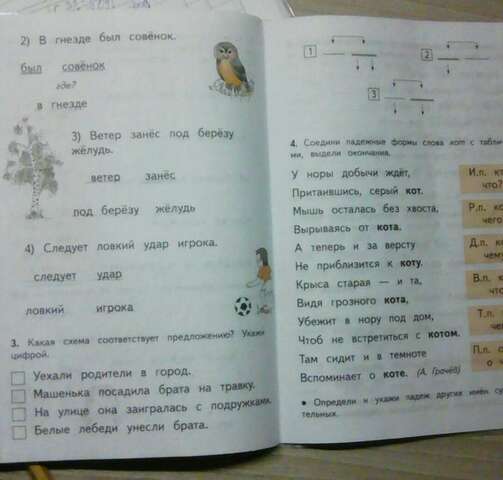 2) В гнезде был совёнок.
был совёнок
где?
в гнезде
3) Ветер занёс под берёзу
жёлудь.
ветер занёс
под берёзу жёлудь
4) Следует ловкий удар игрока.
следует удар
ловкий игрока
3. Какая схема соответствует предложению? Укажи
цифрой.
Уехали родители в город.
Машенька посадила брата на травку.
На улице она заигралась с подружками.
Белые лебеди унесли брата.
1
2
3
4. Соедини падежные формы слова кот с
ми, выдели окончания.
У норы добычи ждёт,
Притаившись, серый кот.
Мышь осталась без хвоста,
Вырываясь от кота.
А теперь и за версту
Не приблизится к коту.
Крыса старая — и та,
Видя грозного кота,
Убежит в нору под дом,
Чтоб не встретиться с котом.
Там сидит и в темноте
Вспоминает о коте. (А. Грачёв)
И.п.
что?
Р.п.
Д.п.
В.п.
Т.п.
П.п.
• Определи и укажи падеж других имён
тельных.